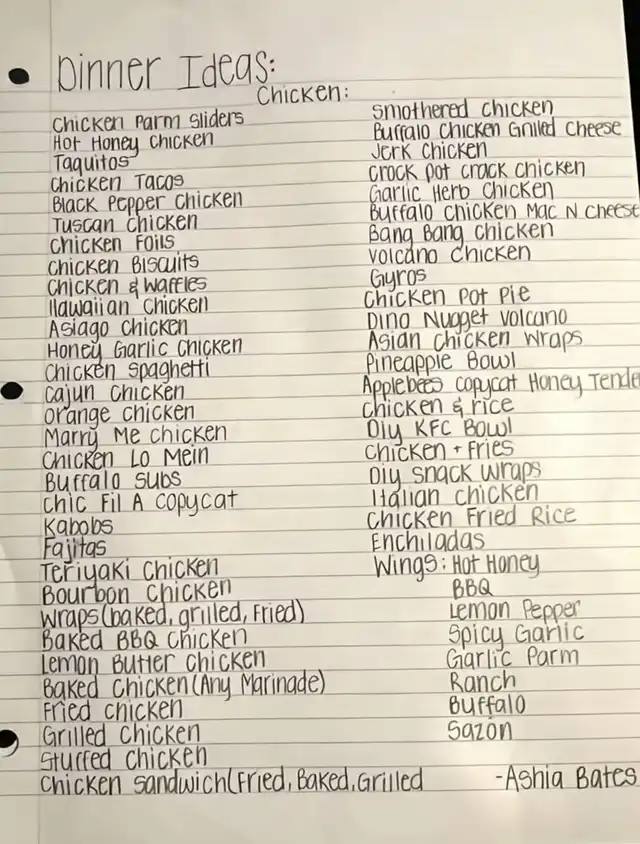 Dinner Ideas:
Chicken:
Chicken Parm Sliders
Hot Honey Chicken
Taquitos
Chicken Tacos
Black Pepper Chicken
Tuscan Chicken
Chicken Foils
Chicken Biscuits
Chicken & Waffles
Hawaiian Chicken
Asiago Chicken
Honey Garlic Chicken
Chicken Spaghetti
Cajun Chicken
Orange Chicken
Marry Me Chicken
Chicken Lo Mein
Buffalo Subs
Chic Fil A Copycat
Kabobs
Fajitas
Teriyaki Chicken
Bourbon Chicken
Wraps(baked, grilled, Fried)
Baked BBQ Chicken
Lemon Butter Chicken
Baked Chicken(Any Marinade)
Fried Chicken
Grilled Chicken
Stuffed Chicken
Chicken Sandwich(Fried, Baked, Grilled
Smothered Chicken
Buffalo Chicken Grilled Cheese
Jerk Chicken
Crock Pot Crack Chicken
Garlic Herb Chicken
Buffalo Chicken Mac N Cheese
Bang Bang Chicken
Volcano Chicken
Gyros
Chicken Pot Pie
Dino Nugget Volcano
Asian Chicken Wraps
Pineapple Bowl
Applebees Copycat Honey Tende
Chicken & Rice
Diy KFC Bowl
Chicken + Fries
Diy Snack Wraps
Italian Chicken
Chicken Fried Rice
Enchiladas
Wings: Hot Honey
BBQ
Lemon Pepper
Spicy Garlic
Garlic Parm
Ranch
Buffalo
Sazón
-Ashia Bates